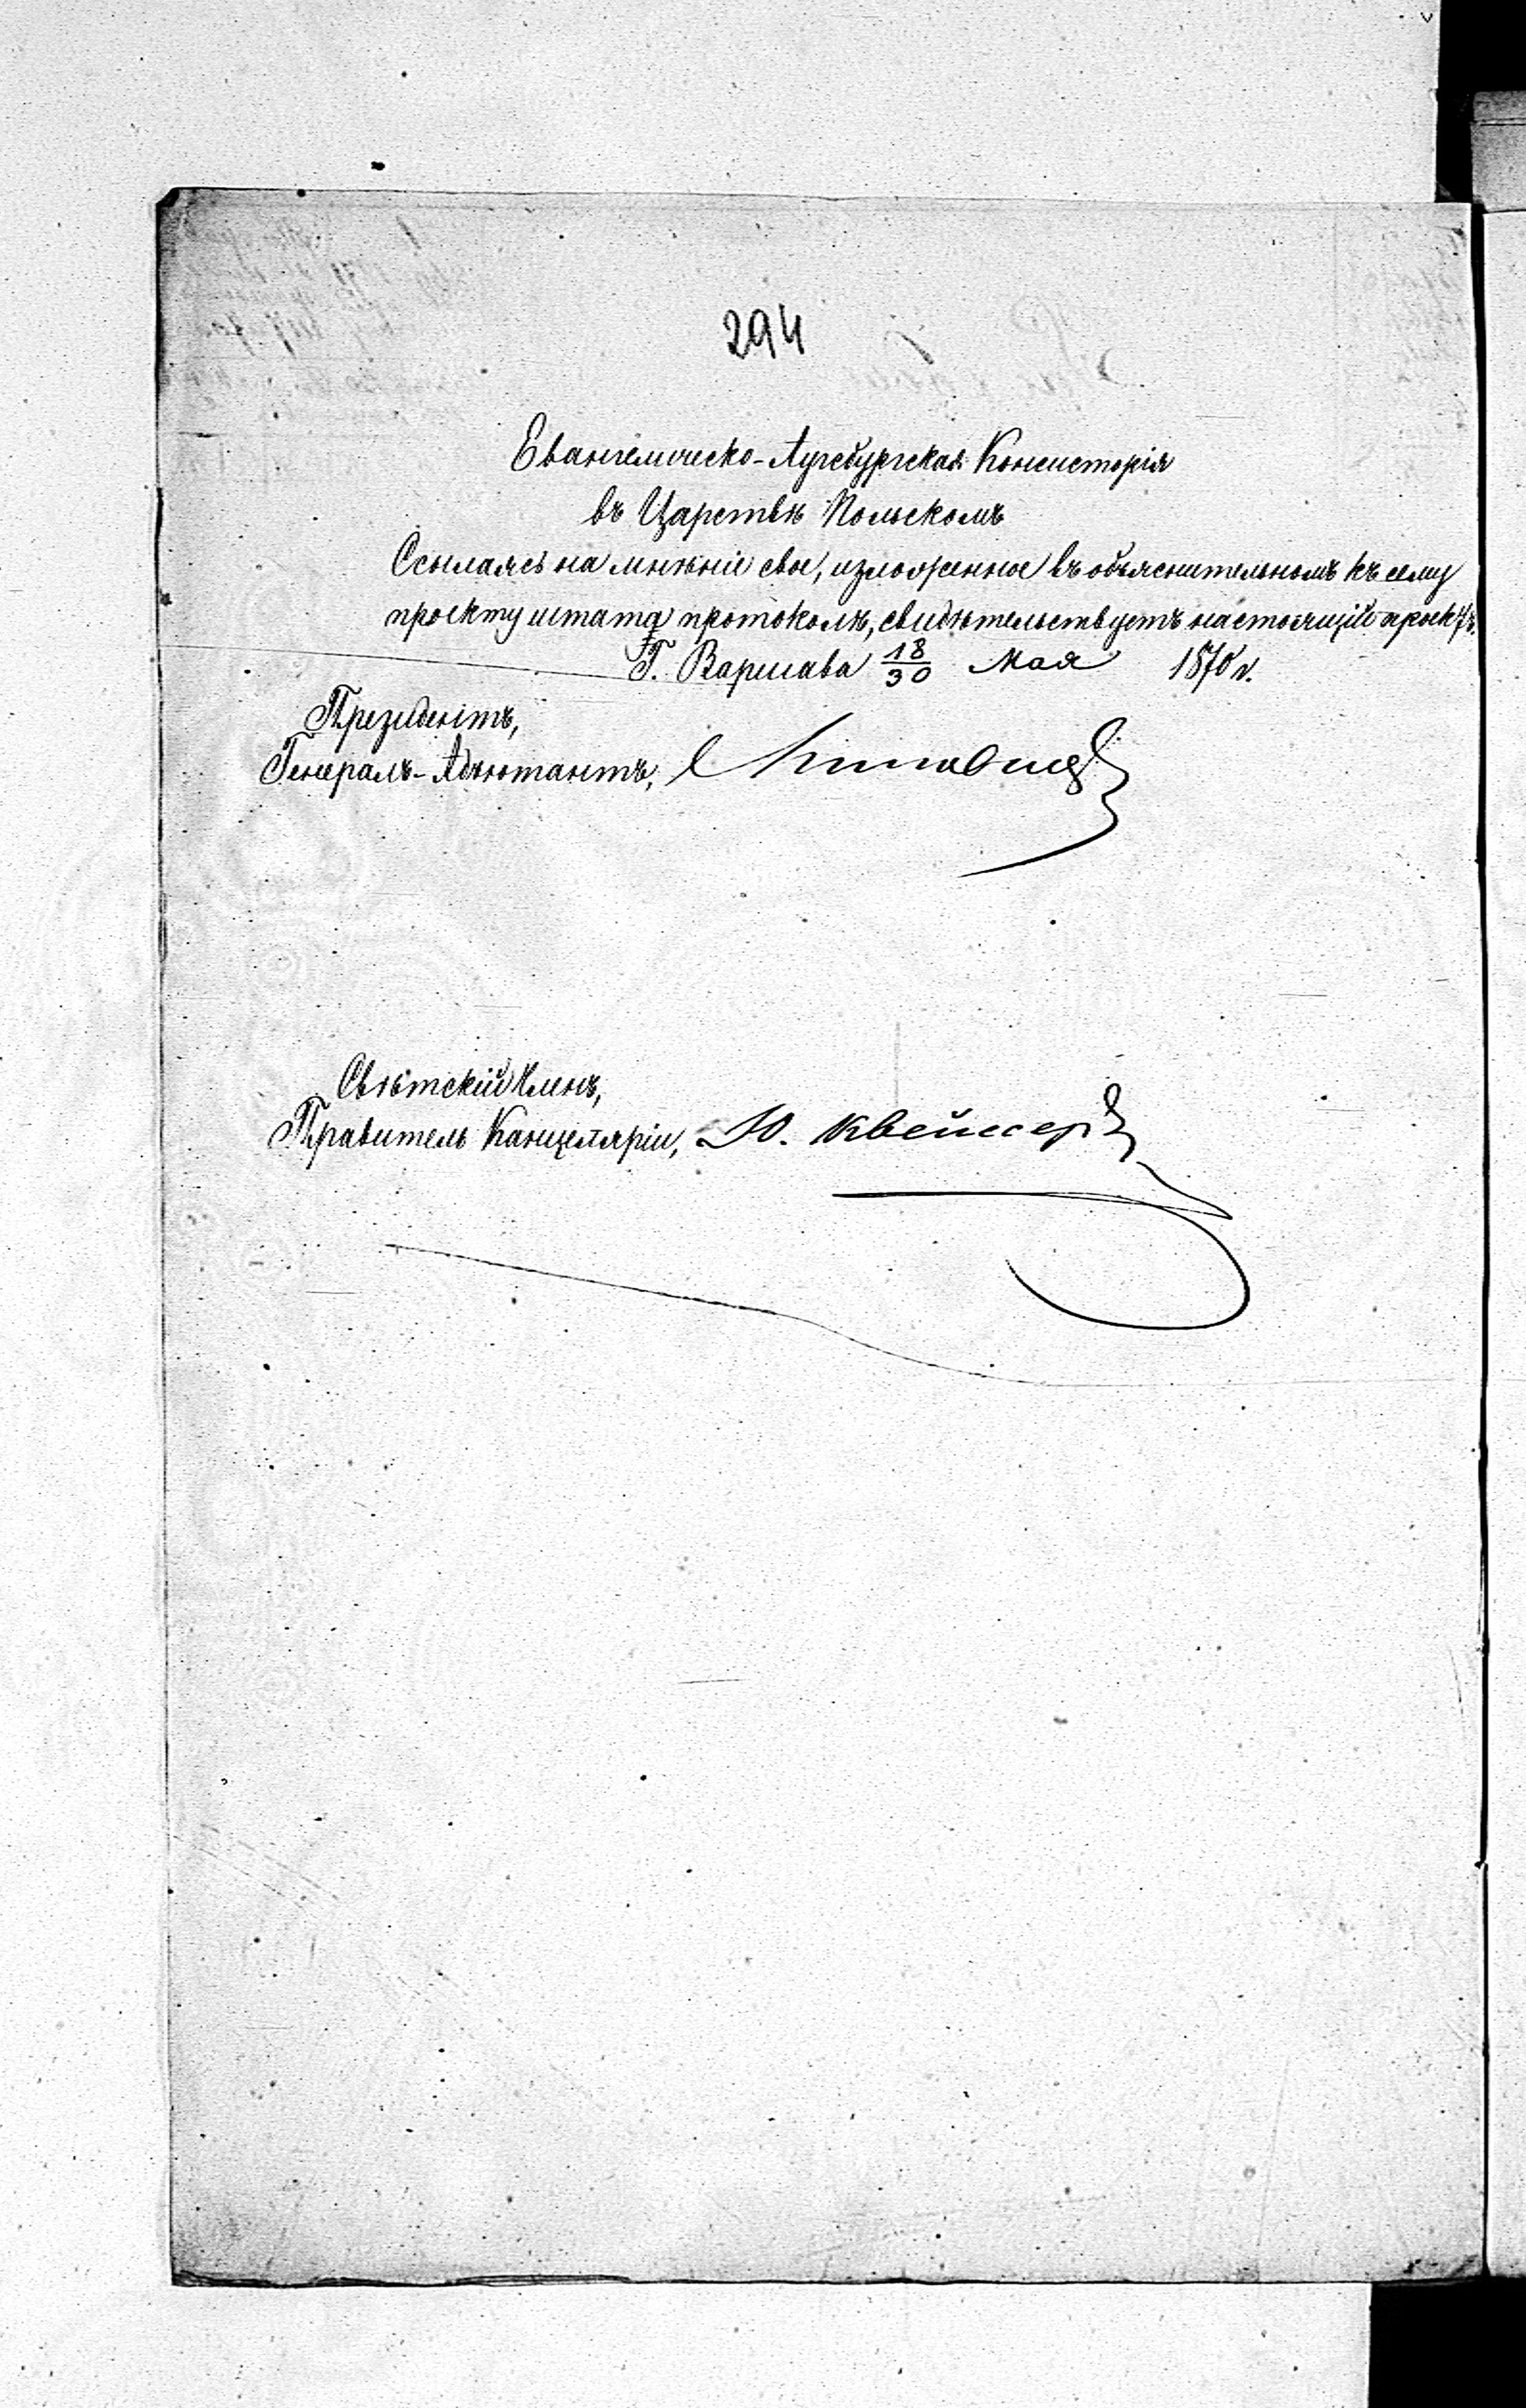 294
Евангелическо-Аугсбургская Консисторія
въ Царствѣ Польскомъ
Ссылаясь на мнѣніе свое, изложенное въ объяснительномъ къ сему
проекту штата протоколѣ, свидѣтельствуетъ настоящій проектъ.
Г. Варшава 18/30 Мая 1870 г.
Президентъ,
Генералъ-Адъютантъ,
Свѣтскій Членъ,
Правитель Канцеляріи, Ю.